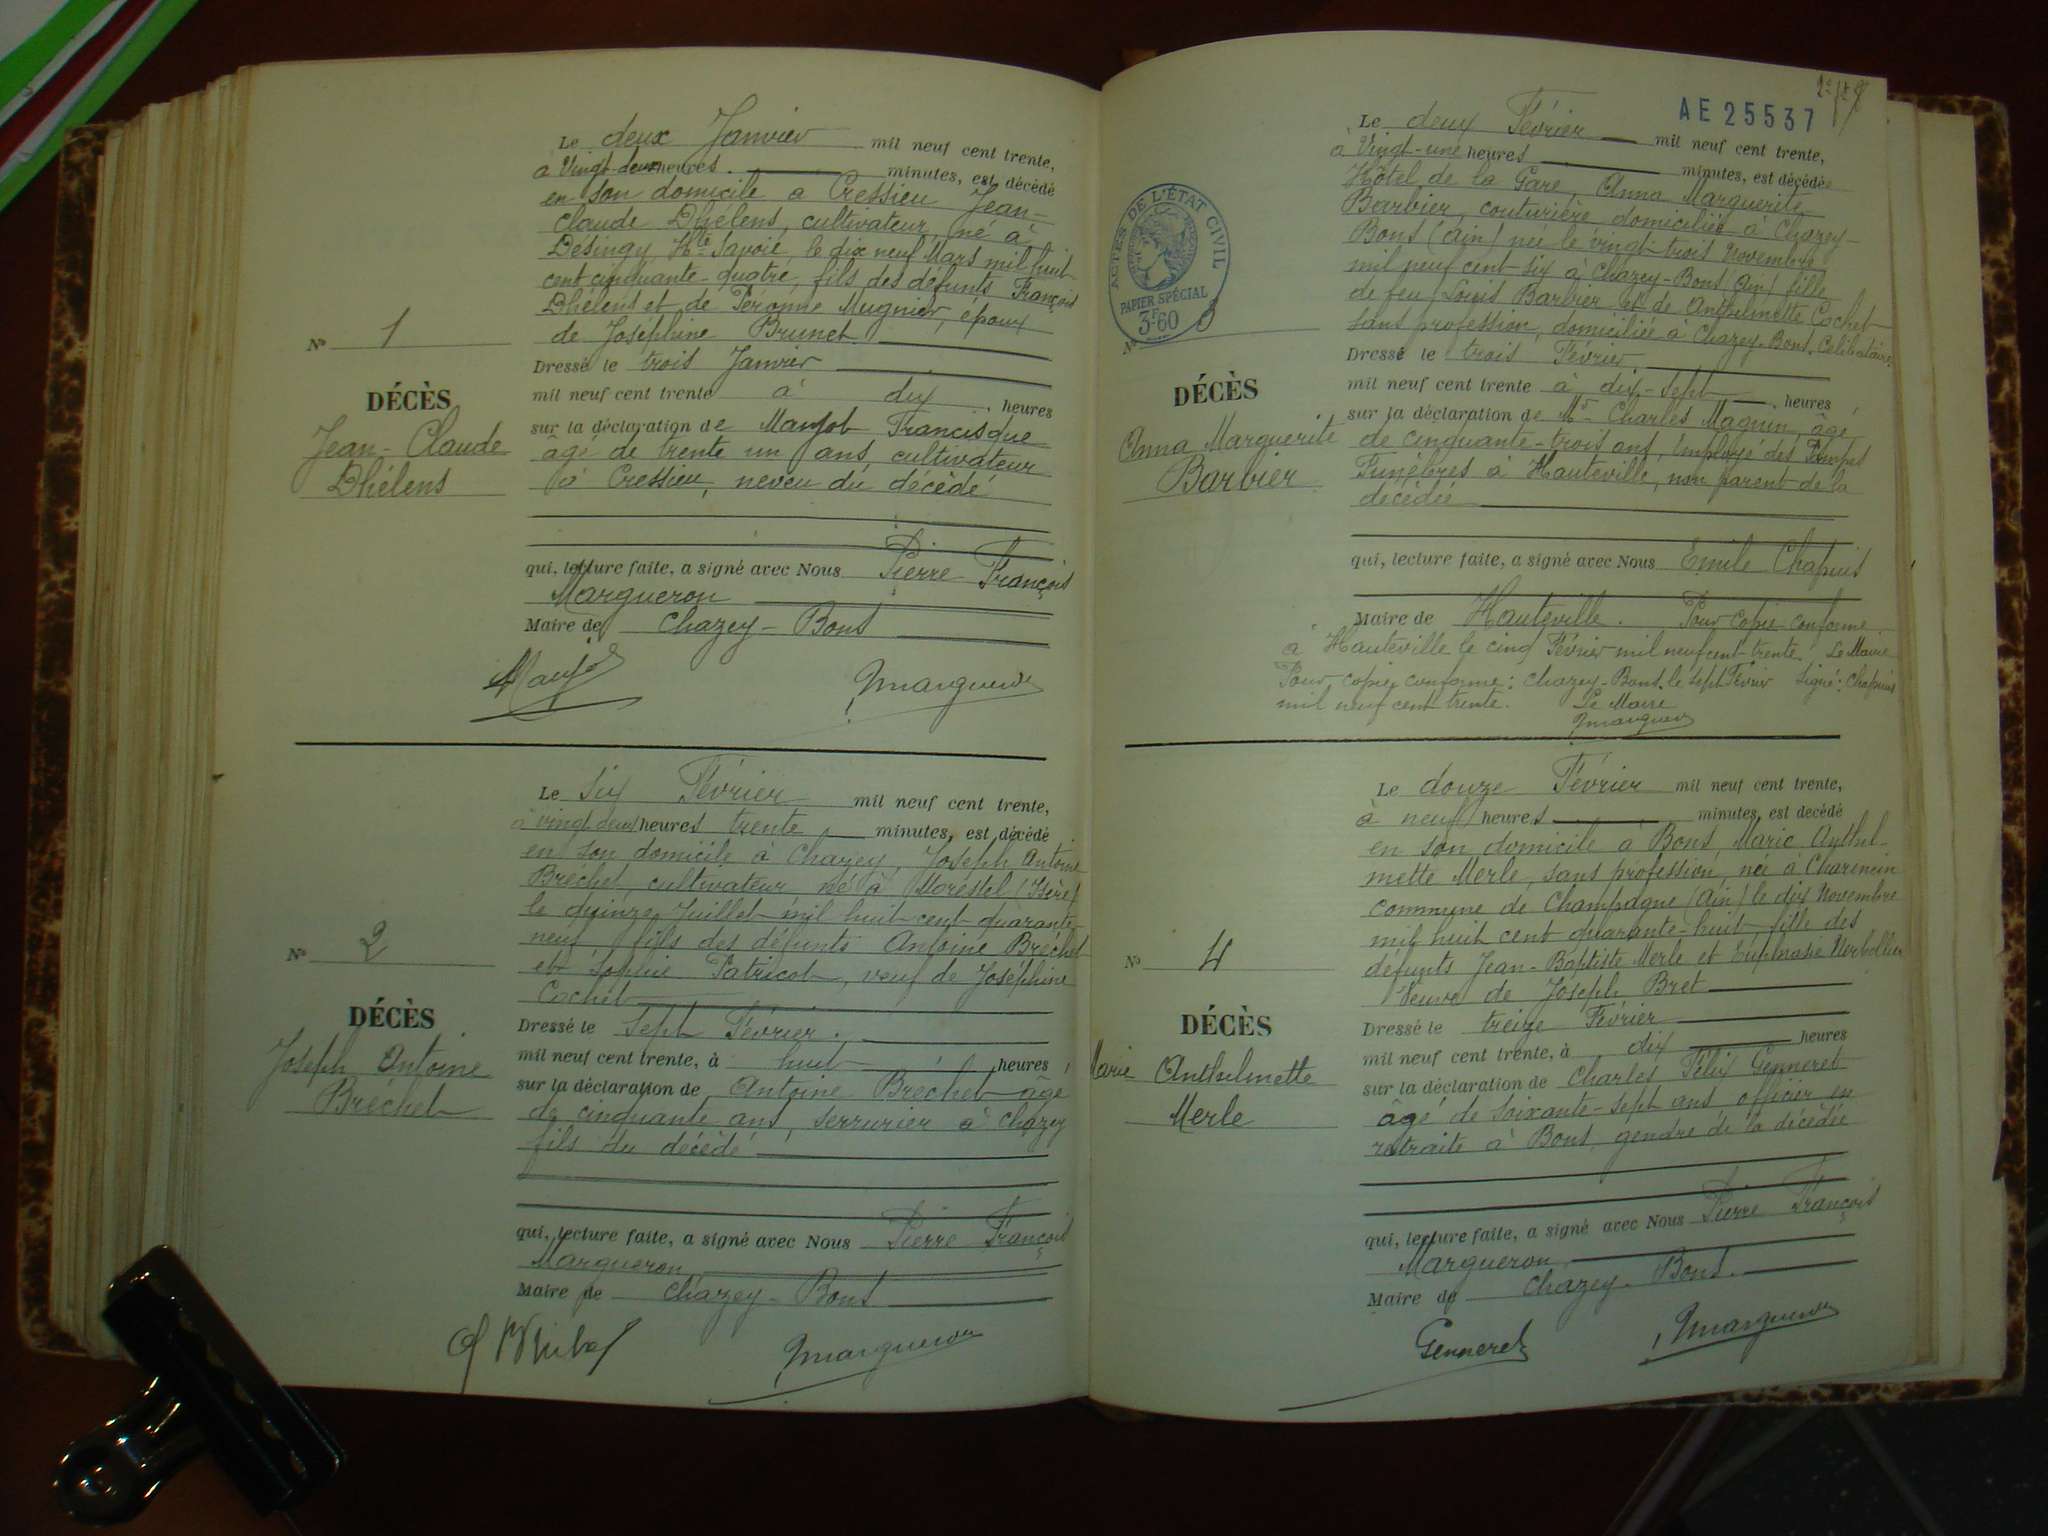 Le deux Janvier mil neuf cent trente,
à Vingt deux heures minutes, est décédé
en son domicile a Cressieu Jean-
Claude Dhélens, cultivateur, né à
Désingy, Hte Savoie, le dix neuf Mars mil huit
cent cinquante-quatre, fils des défunts François
Dhélens et de Péronne Mugnier, époux
de Joséphine Brunet.
Nº 1
DÉCÈS
Jean-Claude
Dhélens
Dressé le trois Janvier
mil neuf cent trente à dix heures
sur la déclaration de Francisque
âgé de trente un ans, cultivateur
à Cressieu, neveu du décédé
qui, lecture faite, a signé avec Nous Pierre François
Margueron
Maire de Chazey-Bons
Margueron
Le Six Février mil neuf cent trente,
à vingt deux heures trente minutes, est décédé
en son domicile à Chazey, Joseph Antoine
Bréchet, cultivateur né à Morestel (Isère)
le quinze Juillet mil huit cent quarante
neuf, fils des défunts Antoine Bréchet
et Sophie Patricot, veuf de Joséphine
Cochet
Nº 2
DÉCÈS
Joseph Antoine
Bréchet
Dressé le Sept Février.
mil neuf cent trente, à huit heures,
sur la déclaration de Antoine Bréchet âgé
de cinquante ans, serrurier à Chazey
fils du décédé
qui, lecture faite, a signé avec Nous Pierre François
Margueron
Maire de Chazey-Bons
Margueron
AE 25537
Le deux Février mil neuf cent trente,
à Vingt-une heures minutes, est décédée
Hôtel de la Gare, Anna Marguerite
Barbier, couturière domiciliée à Chazey-
Bons (Ain) née le vingt-trois Novembre
mil neuf cent six à Chazey-Bons (Ain) fille
de feu Louis Barbier et de Anthelmette Cochet
sans profession, domiciliée à Chazey-Bons. Célibataire
ACTES DE L'ÉTAT CIVIL
PAPIER SPÉCIAL
3F60
Nº 3
DÉCÈS
Anna Marguerite
Barbier
Dressé le trois Février
mil neuf cent trente à dix-sept heures
sur la déclaration de Mr Charles Magnin, âgé
de cinquante-trois ans, employé des Pompes
Funèbres à Hauteville, non parent de la
décédée
qui, lecture faite, a signé avec Nous Emile Chapuis
Maire de Hauteville. Pour copie conforme
à Hauteville le cinq Février mil neuf cent trente. Le Maire
Pour copie conforme: Chazey-Bons, le sept Février Signé: Chapuis
mil neuf cent trente. Le Maire
Margueron
Le douze Février mil neuf cent trente,
à neuf heures minutes, est décédé
en son domicile à Bons, Marie Anthel-
mette Merle, sans profession, née à Charencin
commune de Champagne (Ain) le dix Novembre
mil huit cent quarante-huit, fille des
défunts Jean-Baptiste Merle et Euphrasie
Veuve de Joseph Bret
Nº 4
DÉCÈS
Marie Anthelmette
Merle
Dressé le treize Février
mil neuf cent trente, à dix heures
sur la déclaration de Charles Félix Genneret
âgé de soixante-sept ans officier en
retraite à Bons gendre de la décédée
qui, lecture faite, a signé avec Nous Pierre François
Margueron
Maire de Chazey-Bons.
Genneret Margueron